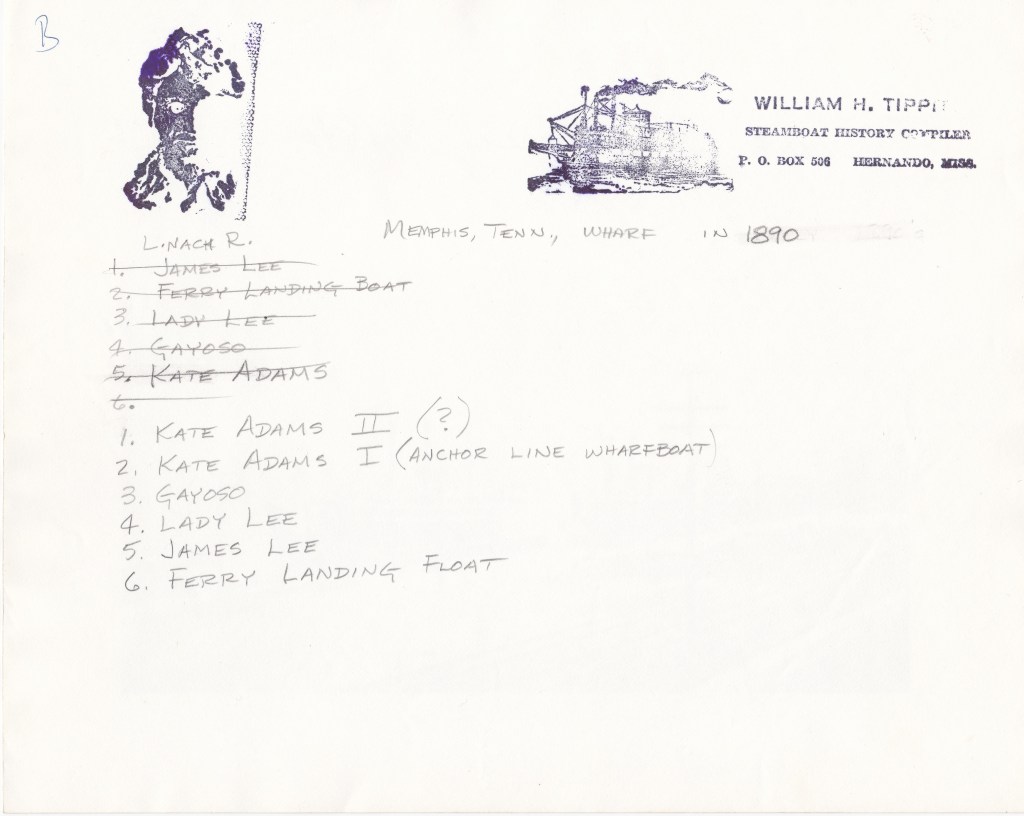 B
WILLIAM H. TIPPI
STEAMBOAT HISTORY COMPILER
P. O. BOX 506 HERNANDO, MISS.
MEMPHIS, TENN., WHARF IN 1890
L. NACH R.
1. JAMES LEE
2. FERRY LANDING BOAT
3. LADY LEE
4. GAYOSO
5. KATE ADAMS
6.
1. KATE ADAMS II (?)
2. KATE ADAMS I (ANCHOR LINE WHARFBOAT)
3. GAYOSO
4. LADY LEE
5. JAMES LEE
6. FERRY LANDING FLOAT